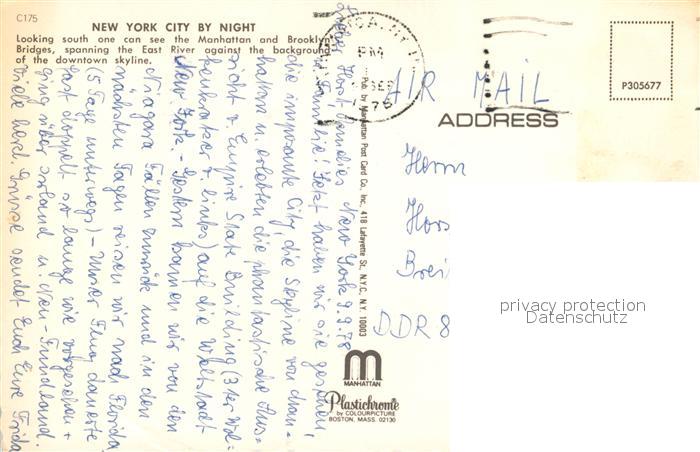 C175
NEW YORK CITY BY NIGHT
Looking south one can see the Manhattan and Brooklyn
Bridges, spanning the East River against the background
of the downtown skyline.
PM
SEP
P305677
AIR MAIL
ADDRESS
Herrn
Hors
Brei
DDR 8
privacy protection
Datenschutz
Pub. by Manhattan Post Card Co., Inc., 418 Lafayette St., N.Y.C. N.Y. 10003
m
MANHATTAN
Plastichrome
by COLOURPICTURE
BOSTON, MASS. 02130
New York 9.9.78
Familie! Jetzt haben wir sie gesehen,
die imposante City, die Skyline von Man-
hattan u. erlebten die phantastische Aus-
sicht v. Empire State Building (3 ter Wol-
kenkratzer v. links) auf die Weltstadt
New York - Gestern kamen wir von den
Niagara Fällen zurück und in den
nächsten Tagen reisen wir nach Florida
(15 Tage unterwegs) - Unser Flug dauerte
fast doppelt so lange wie vorgesehen +
ging über Island u. Neu-Fundland.
Viele herzl. Grüsse sendet Euch Eure Frida